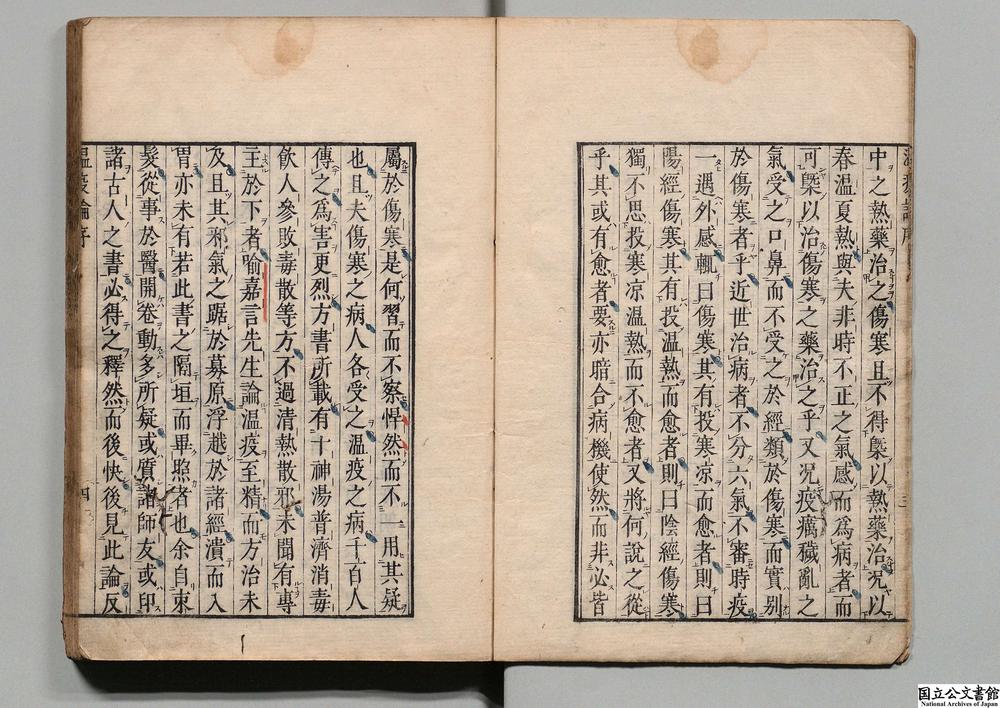 中之熱藥治之傷寒且不得槩以熱藥治況以
春溫夏熱與夫非時不正之氣感而為病者而
可槩以治傷寒之藥治之乎又況疫癘穢亂之
氣受之口鼻而不受之於經類於傷寒而實別
於傷寒者乎近世治病者不分六氣不審時疫
一遇外感輒曰傷寒其有投寒凉而愈者則曰
陽經傷寒其有投溫熱而愈者則曰陰經傷寒
獨不思投寒凉溫熱而不愈者又將何說之從
乎其或有愈者要亦暗合病機使然而非必皆
三
屬於傷寒是何習而不察悍然而不一用其疑
也且夫傷寒之病人各受之溫疫之病千百人
傳之為害更烈方書所載有十神湯普濟消毒
飲人參敗毒散等方不過清熱散邪未聞有專
主於下者喻嘉言先生論溫疫至精而方治未
及且其邪氣之踞於募原浮越於諸經潰而入
胃亦未有若此書之隔垣而畢照者也余自束
髮從事於醫開卷動多所疑或質諸師友或印
諸古人之書必得之釋然而後快後見此論反
溫疫論序
四
国立公文書館
National Archives of Japan